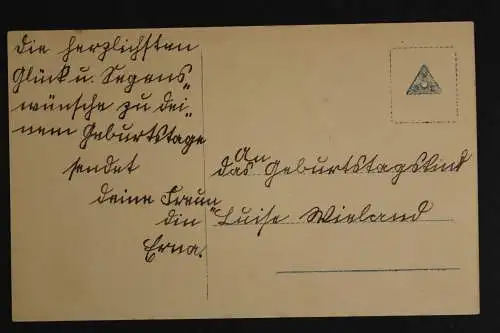 Die herzlichsten
Glück u. Segens„
wünsche zu dei„
nem Geburtstage
sendet
deine Freun„
din
Erna.
An
das Geburtstagskind
Luise Wieland